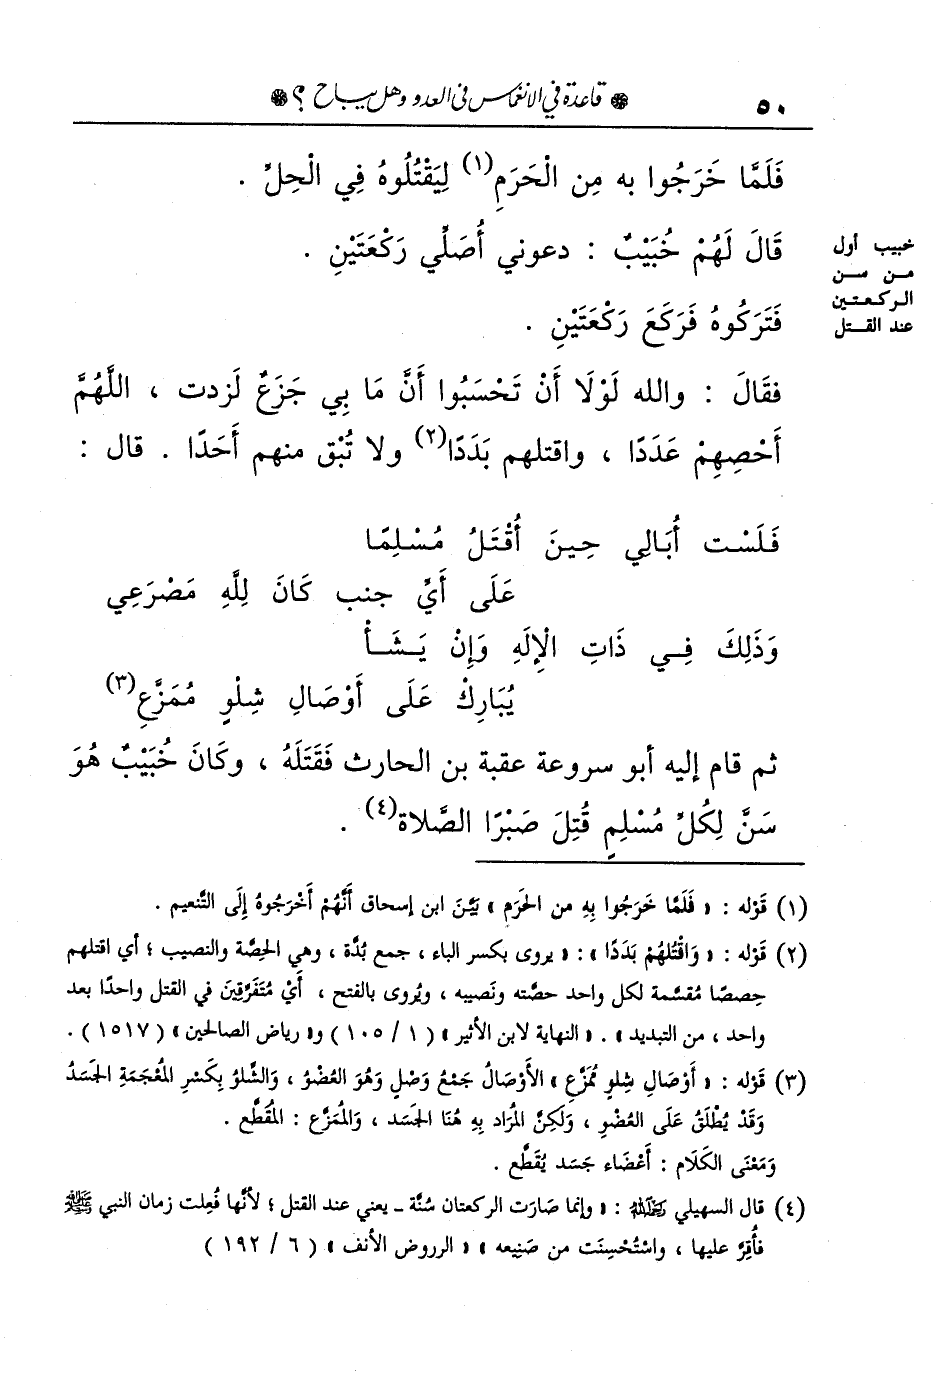 ٥٠
❁ قاعدة في الانغماس في العدو وهل يباح ؟ ❁
فَلَمَّا خَرَجُوا به مِن الْحَرَمِ(١) لِيَقْتُلُوهُ فِي الْحِلِّ .
خبيب أول
من سن
الركعتين
عند القتل
قَالَ لَهُمْ خُبَيْبٌ : دعوني أُصَلِّي رَكْعَتَيْنِ .
فَتَرَكُوهُ فَرَكَعَ رَكْعَتَيْنِ .
فقَالَ : والله لَوْلَا أَنْ تَحْسَبُوا أَنَّ مَا بِي جَزَعٌ لَزدت ، اللَّهُمَّ
أَحْصِهِمْ عَدَدًا ، واقتلهم بَدَدًا(٢) ولا تُبْق منهم أَحَدًا . قال :
فَلَسْت أُبَالِي حِينَ أُقْتَلُ مُسْلِمًا
عَلَى أَيِّ جنب كَانَ لِلَّهِ مَصْرَعِي
وَذَلِكَ فِي ذَاتِ الْإِلَهِ وَإِنْ يَشَأْ
يُبَارِكْ عَلَى أَوْصَالِ شِلْوٍ مُمَزَّعِ(٣)
ثم قام إليه أبو سروعة عقبة بن الحارث فَقَتَلَهُ ، وكَانَ خُبَيْبٌ هُوَ
سَنَّ لِكُلِّ مُسْلِمٍ قُتِلَ صَبْرًا الصَّلاة(٤) .
(١) قَوْله : « فَلَمَّا خَرَجُوا بِهِ من الحَرَمِ » بَيَّنَ ابن إسحاق أَنَّهُمْ أَخْرَجُوهُ إِلَى التَّنعيم .
(٢) قَوْله : « وَاقْتُلهُمْ بَدَدًا » : « يروى بكسر الباء ، جمع بُدَّة ، وهي الحِصَّة والنصيب ؛ أي اقتلهم
حِصصًا مُقسَّمة لكل واحد حصَّته ونَصيبه ، ويُروى بالفتح ، أَيْ مُتَفَرِّقِينَ في القتل واحدًا بعد
واحد ، من التبديد » . « النهاية لابن الأثير » ( ١ / ١٠٥ ) و« رياض الصالحين » ( ١٥١٧ ) .
(٣) قَوْله : « أَوْصَالِ شِلوٍ مُمَزَّعِ » الأَوْصَالُ جَمْعُ وَصْلٍ وَهُوَ العُضْوُ ، وَالشِّلوُ بِكَسْرِ المُعْجَمَةِ الجَسَدُ
وَقَدْ يُطْلَقُ عَلَى العُضْوِ ، وَلَكِنَّ المُرَاد بِهِ هُنَا الجَسَد ، وَالمُمَزَّع : المُقَطَّع .
وَمَعْنَى الكَلَام : أَعْضَاء جَسَد يُقَطَّع .
(٤) قال السهيلي رَحِمَهُ اللهُ : « وإنما صَارَت الركعتان سُنَّة ـ يعني عند القتل ؛ لأنَّها فُعِلت زمان النبي ﷺ
فأُقِرَّ عليها ، واسْتُحْسِنَت من صَنِيعه » « الرروض الأنف » ( ٦ / ١٩٢ )